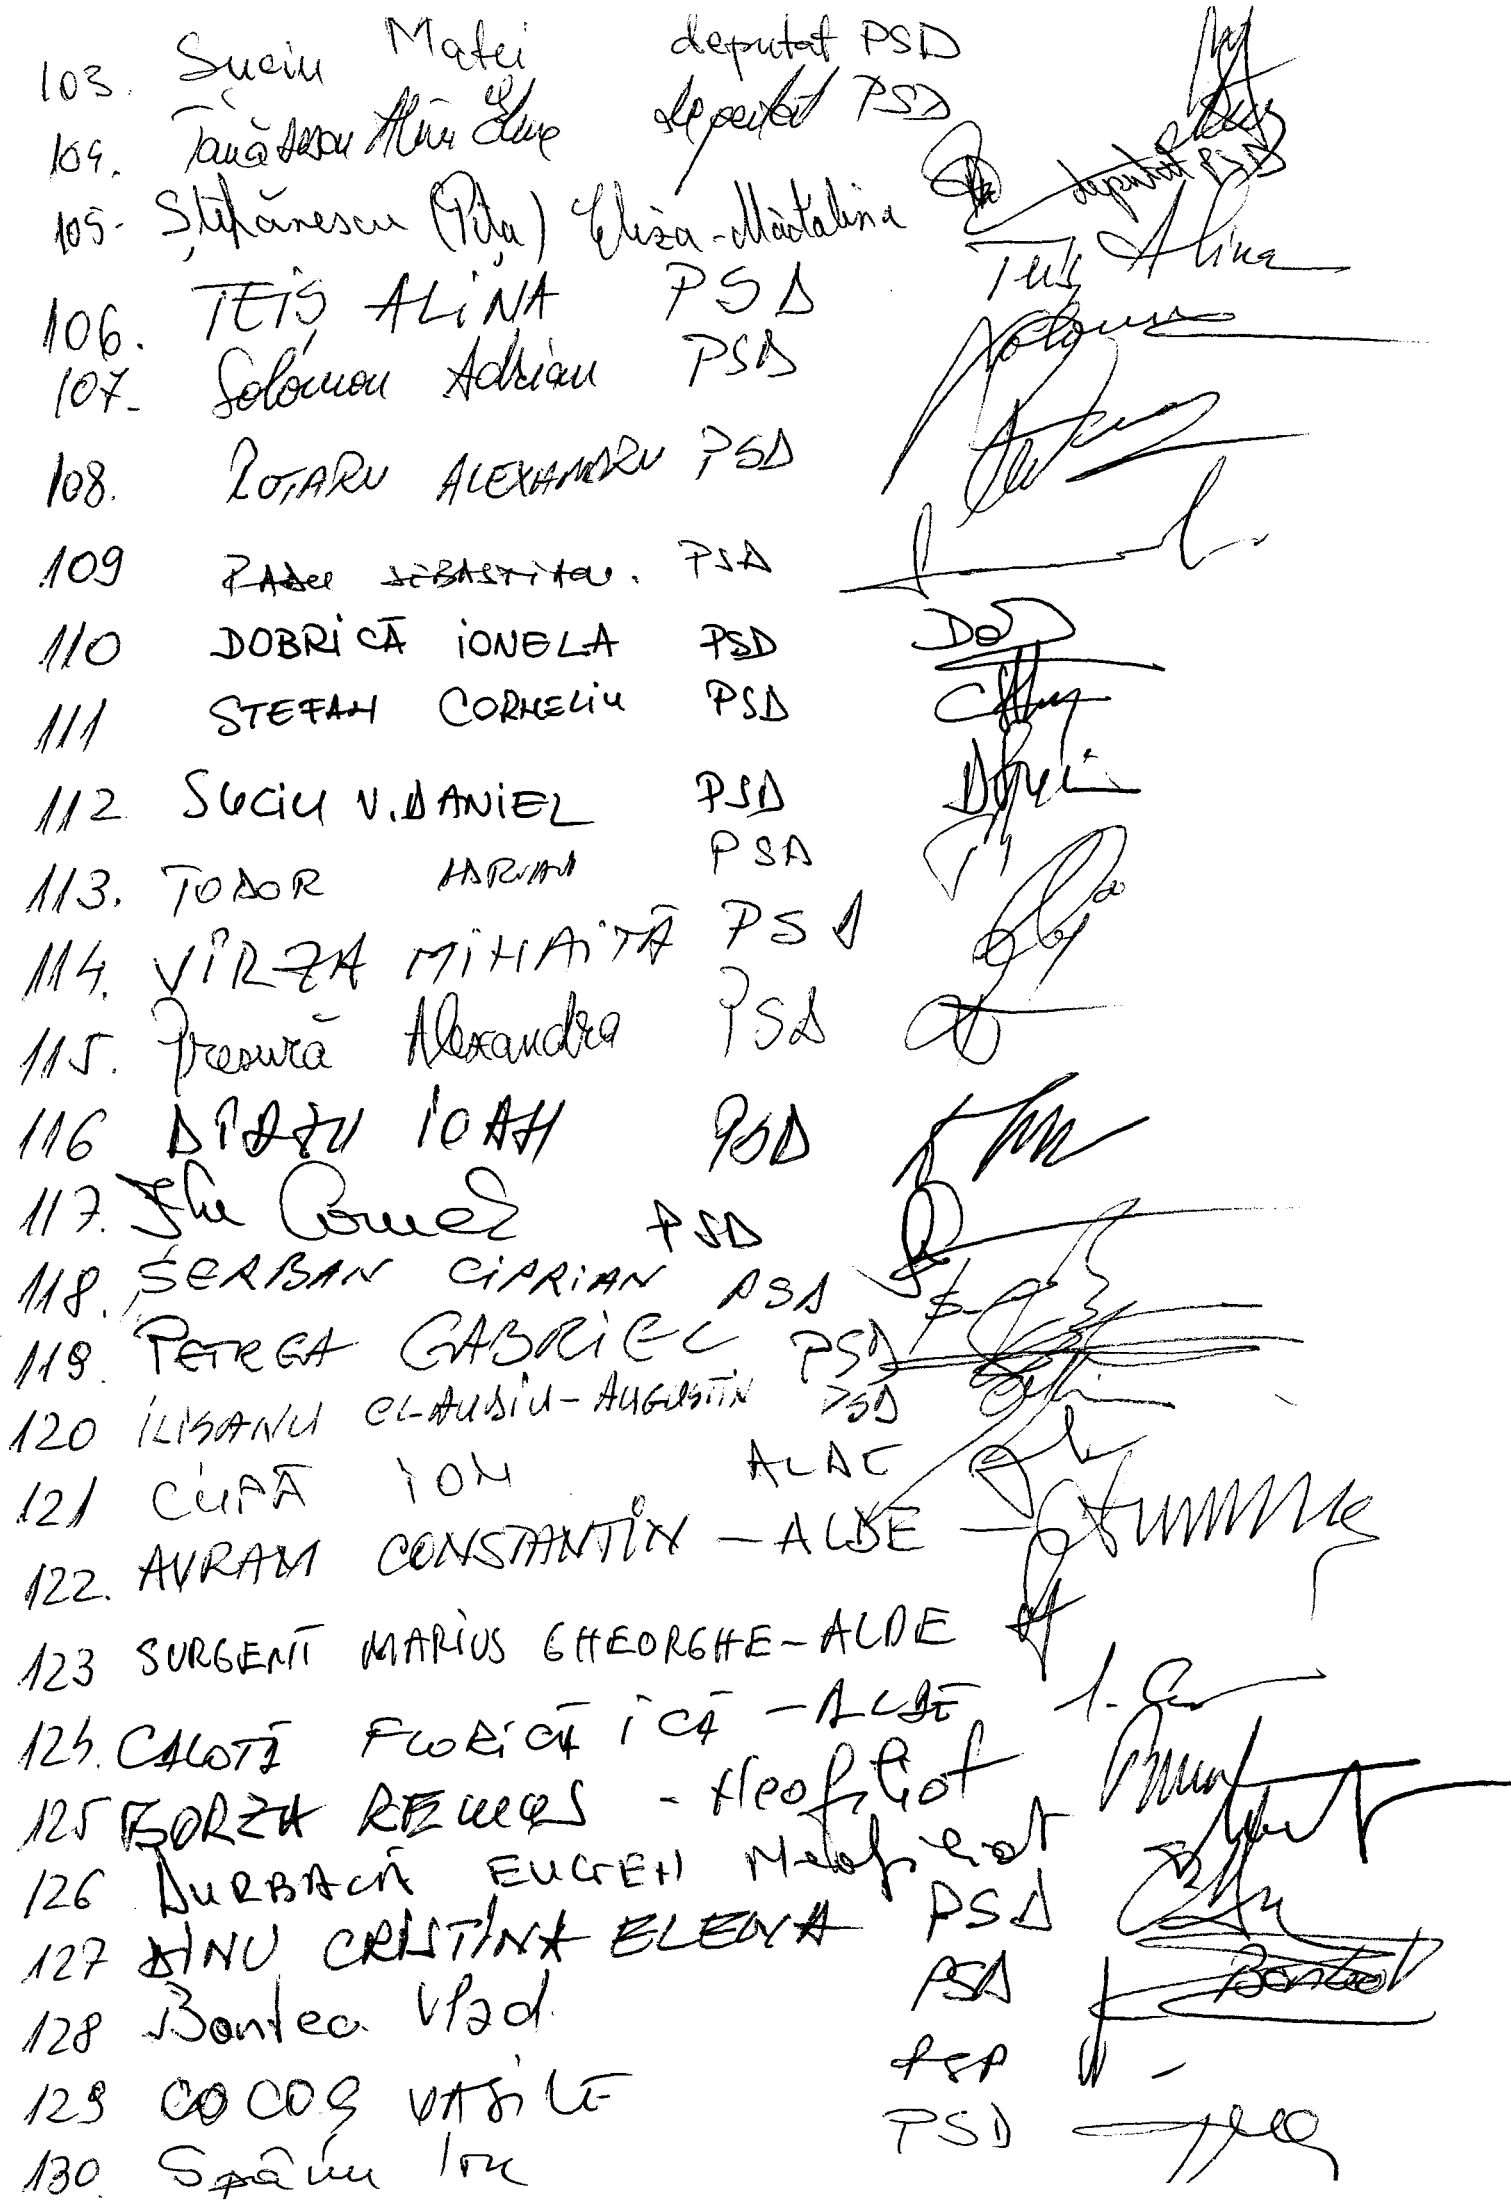 103. Suciu Matei deputat PSD
104. Tănăsescu Alina Elena deputat PSD
105. Ștefănescu (Pița) Eliza-Mădălina deputat PSD
106. TEIȘ ALINA PSD Teiș Alina
107. Solomon Adrian PSD
108. ROTARU ALEXANDRU PSD
109 RADU SEBASTIAN. PSD
110 DOBRICĂ IONELA PSD
111 STEFAN CORNELIU PSD
112 SUCIU V. DANIEL PSD
113. TODOR ADRIAN PSD
114. VÎRZA MIHAIȚĂ PSD
115. Presură Alexandra PSD
116 DÎRZU IOAN PSD
117. PSD
118. ȘERBAN CIPRIAN PSD
119. PETREA GABRIEL PSD
120 ILIȘANU CLAUDIU-AUGUSTIN PSD
121 CUPĂ ION ALDE
122. AVRAM CONSTANTIN - ALDE -
123 SURGENT MARIUS GHEORGHE - ALDE
124. CALOTĂ FLORICĂ ICĂ - ALDE
125 BORZA REMUS - Neafiliat
126 DURBACĂ EUGEN Neafiliat
127 DINU CRISTINA ELENA PSD
128 Bontea Vlad PSD
129 COCOȘ VASILE PSD
130. Spânu Ion PSD